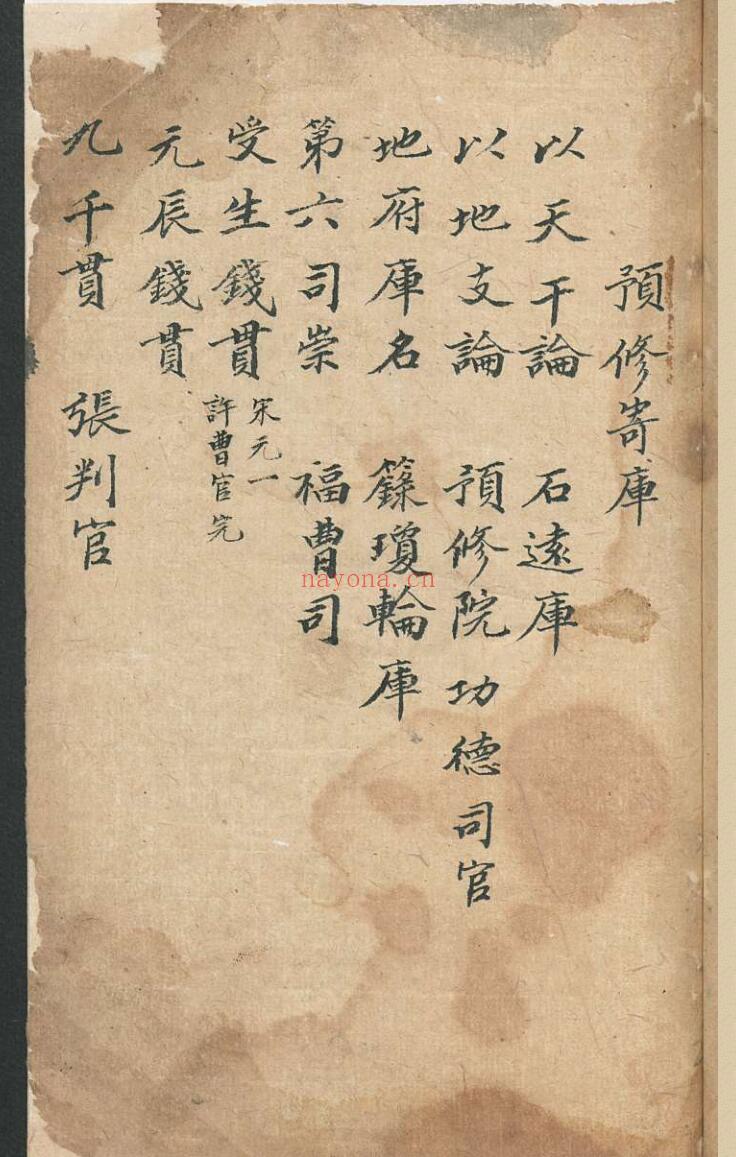 預修寄庫
以天干論 石遠庫
以地支論 預修院功德司官
地府庫名 籙瓊輪庫
第六司崇 福曹司
受生錢貫 宋元一
許曹官完
元辰錢貫
九千貫 張判官
nayona.cn